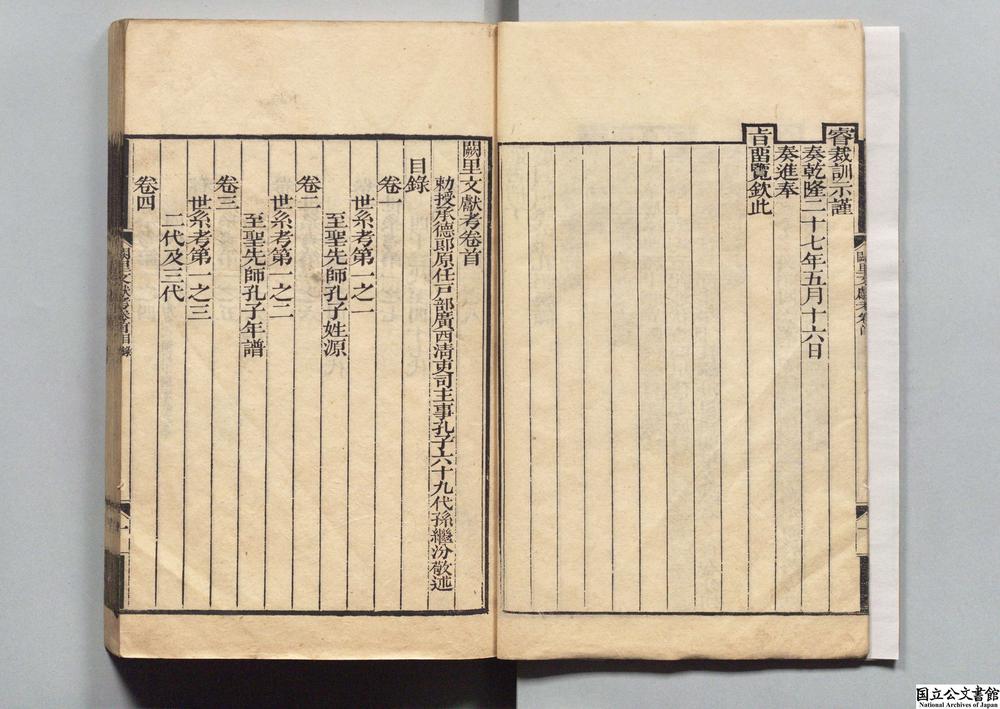 睿裁訓示謹
奏乾隆二十七年五月十六日
奏進奉
旨留覽欽此
闕里文獻考卷首
勅授承德郎原任戸部廣西清吏司主事孔子六十九代孫繼汾敬述
目錄
卷一
世系考第一之一
至聖先師孔子姓源
卷二
世系考第一之二
至聖先師孔子年譜
卷三
世系考第一之三
二代及三代
卷四
闕里文獻考卷首目錄
一
国立公文書館
National Archives of Japan